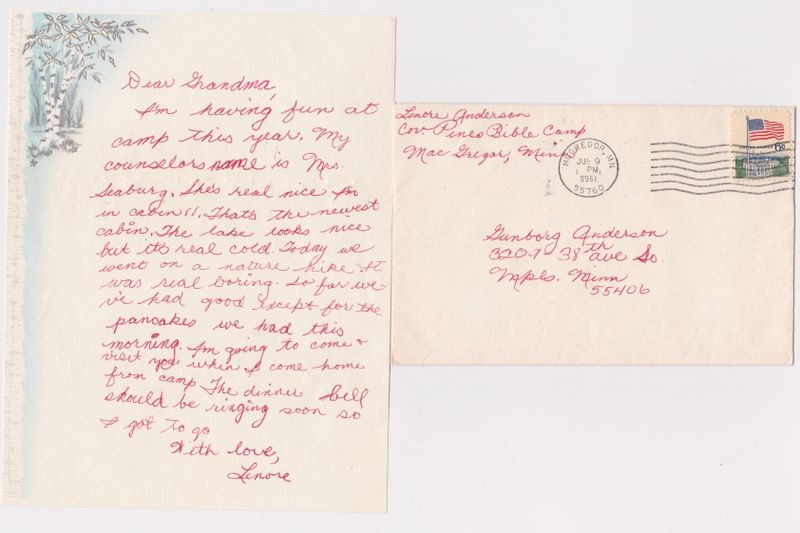 Dear Grandma,
I'm having fun at
camp this year. My
counselors name is Mrs.
Seaburg. She's real nice I'm
in cabin 11. Thats the newest
cabin. The lake looks nice
but it's real cold. Today we
went on a nature hike It
was real boring. So far we
've had good except for the
pancakes we had this
morning. I'm going to come &
visit you when I come home
from camp The dinner bell
should be ringing soon so
I got to go
With love,
Lenore
Lenore Anderson
Cov Pines Bible Camp
Mac Gregor, Minn
MCGREGOR, MN
JUL 9
PM
55760
6c
Gunborg Anderson
3207-38th ave So.
Mpls. Minn
55406